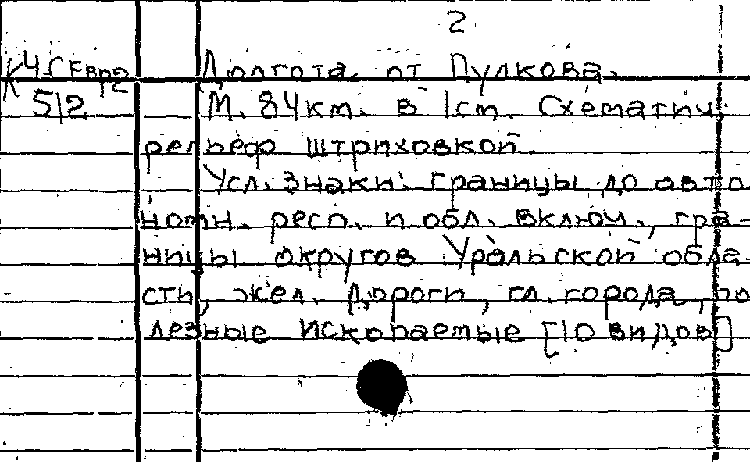 2
К45 Евр2
5|2
Долгота от Пулкова.
М. 84 км. в 1 см. Схематич.
рельеф штриховкой.
Усл. знаки: границы до авто
номн. респ. и обл. включ., гра-
ницы округов Уральской обла
сти, жел. дороги, гл. города, по
лезные ископаемые [10 видов]